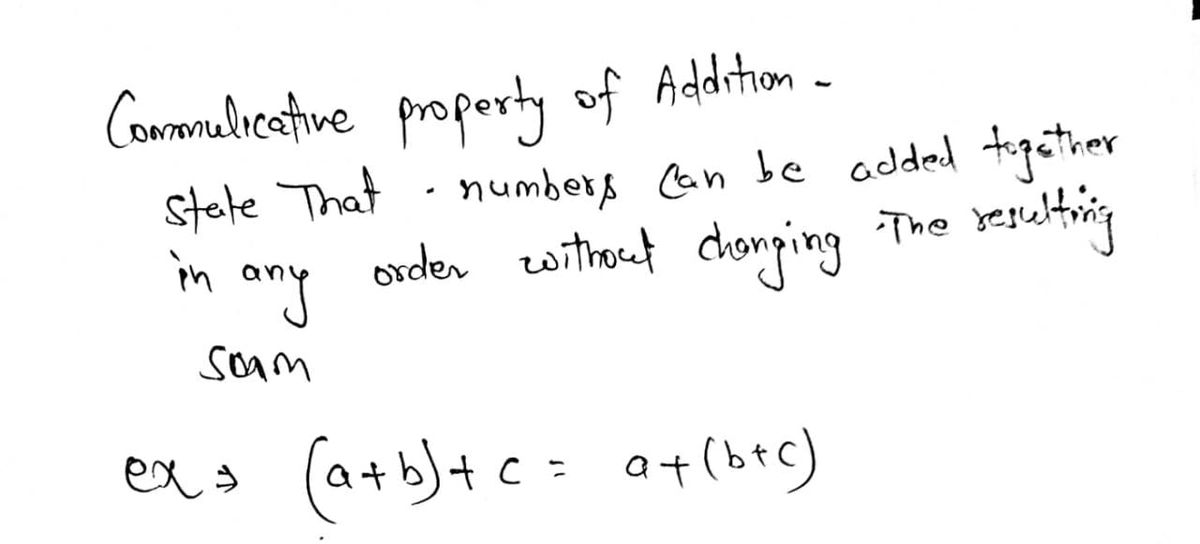 Commulicative property of Addition -
state That . numbers Can be added together
in any order without changing The resulting
sum
ex → (a+b)+c = a+(b+c)